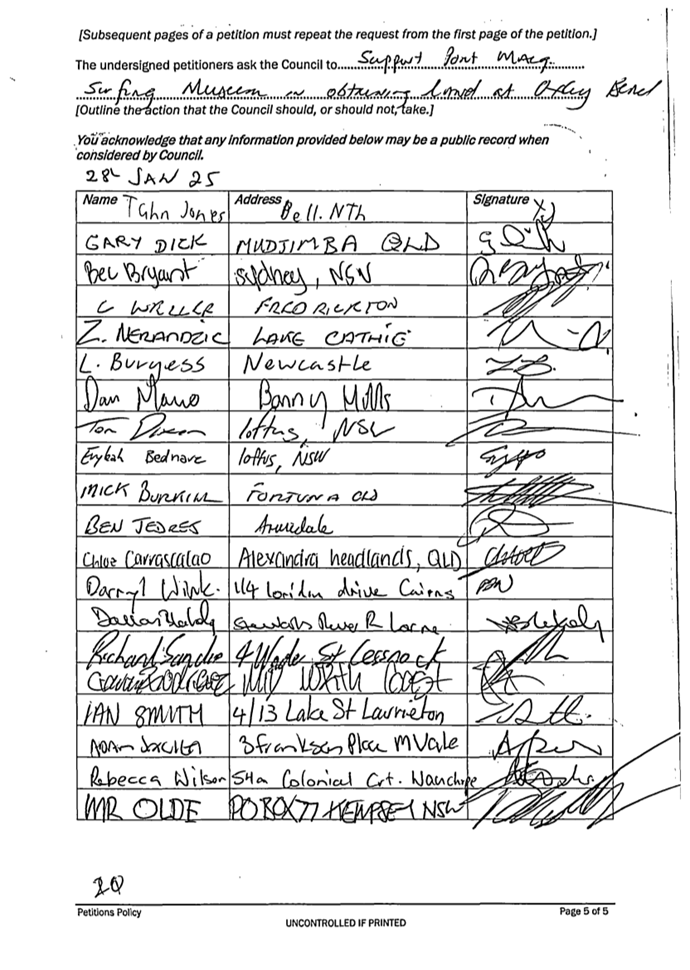 [Subsequent pages of a petition must repeat the request from the first page of the petition.]
The undersigned petitioners ask the Council to..... Support Port Macq.
Surfing Museum in obtaining land at Oxley
[Outline the action that the Council should, or should not, take.]
You acknowledge that any information provided below may be a public record when
considered by Council.
28 JAN 25
Name Tahn Jones Address Bell. NTh Signature
GARY DICK MUDJIMBA QLD
Bec Bryant Sydney, NSW
C FREDRICKTON
Z. NERANDZIC LAKE CATHIE
L. Burgess Newcastle
Dan Bonny Hills
Tom Dixon loftus, NSW
Bednarc loftus, NSW
MICK BURKIM FORTUNA QLD
BEN TEDRES Armidale
Chloe Carrascalao Alexandra headlands, QLD
Darryl Wink. 114 drive Cairns
River R Lorne
Richard 4 Wade St Cessnock
MID NORTH COAST
IAN SMITH 4/13 Lake St Laurieton
3 Place M Vale
Rebecca Wilson 54a Colonial Crt. Wauchope
MR OLDE PO BOX 77 KEMPSEY NSW
20
Petitions Policy Page 5 of 5
UNCONTROLLED IF PRINTED